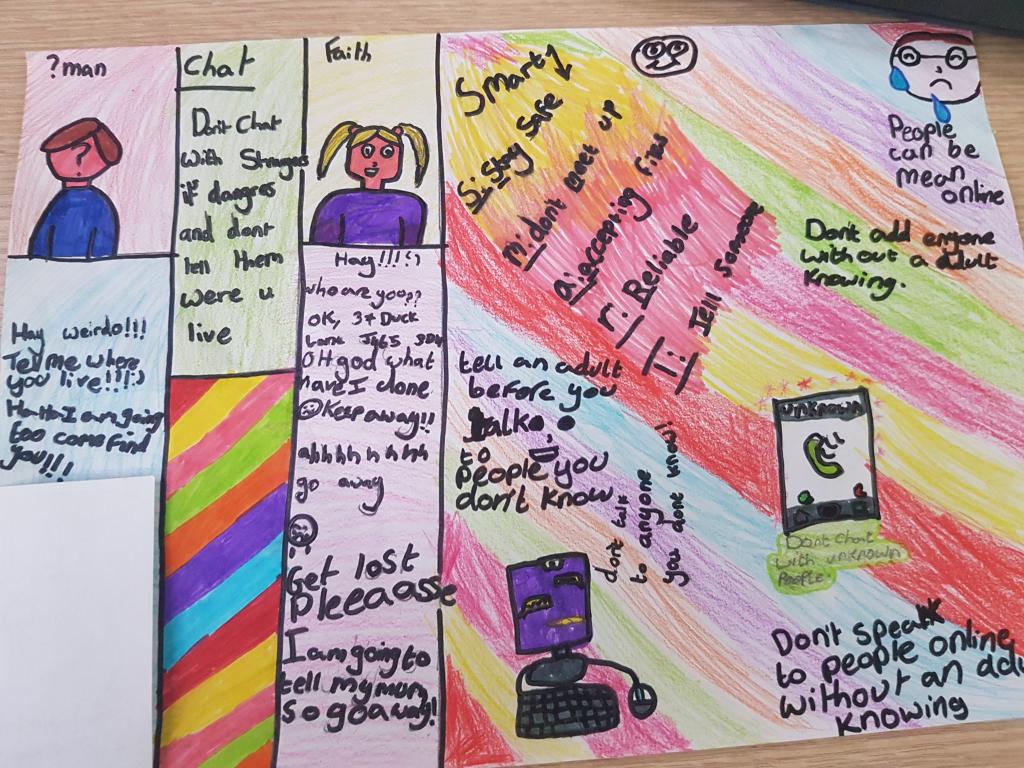 ?man
Hay weirdo!!!
Tell me where
you live!!!:)
Ha Ha I am going
too come find
you!!!
Chat
Don't Chat
with Strangers
it dangres
and dont
tell them
were u
live
Faith
Hay!!!:)
who are you??
OK, 37 Duck
OH god what
have I done
Keep away!!
ahhhhhhhh
go away
Get lost
Pleeaasse
I am going to
tell my mum
So go away!
Smart
S: Stay Safe
m: dont meet up
a: accepting files
r: Reliable
T: Tell Someone
tell an adult
before you
talk
to
people you
don't know
dont talk
to anyone
you dont know!
People
can be
mean
online
Don't add anyone
without a adult
Knowing.
UNKNOWN
Dont Chat
with unknown
People.
Don't speak
to people online
without an adu
Knowing